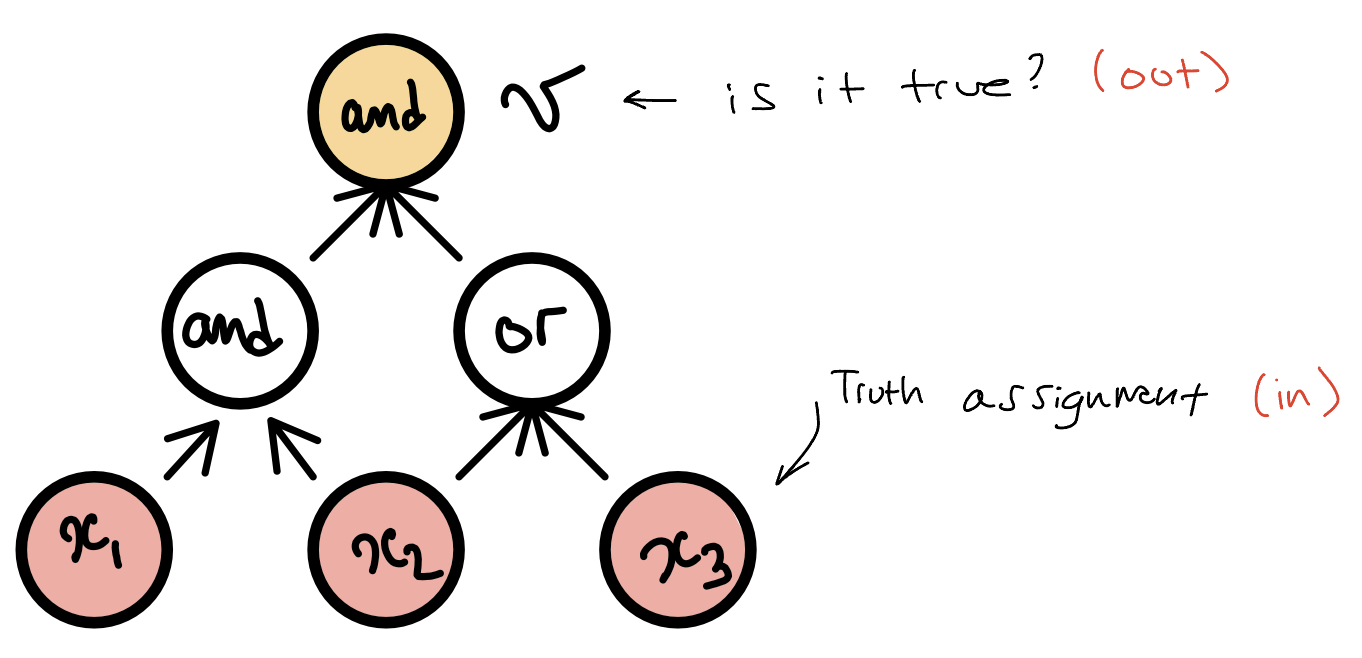 and v ← is it true? (out)
and or
Truth assignment (in)
x₁ x₂ x₃